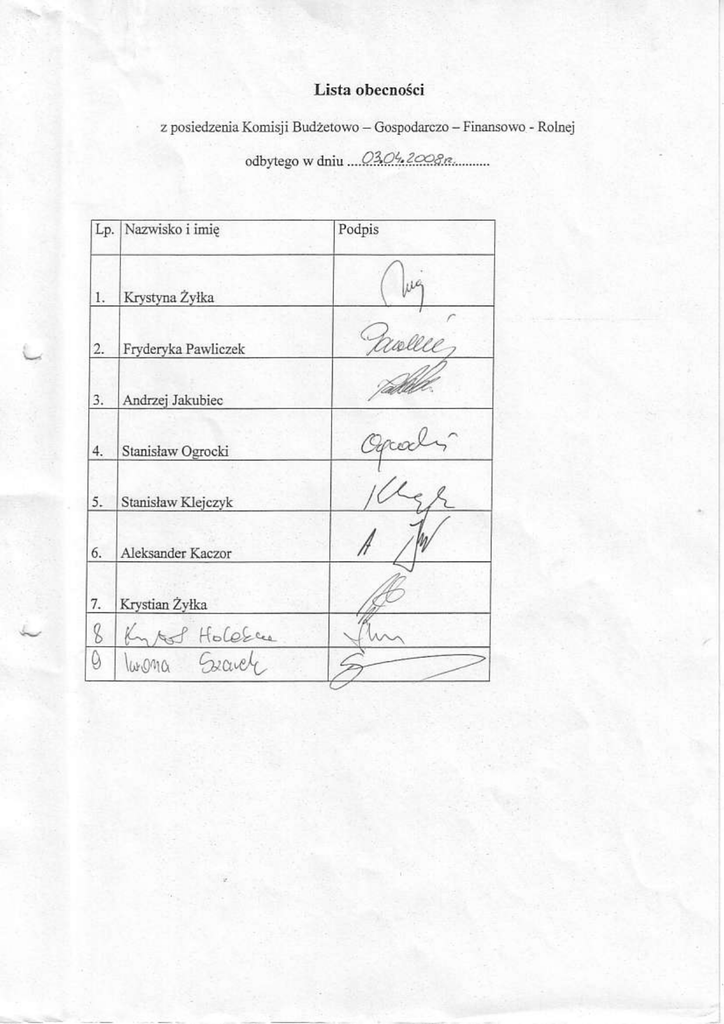 Lista obecności
z posiedzenia Komisji Budżetowo – Gospodarczo – Finansowo - Rolnej
odbytego w dniu ....03.04.2008r..........
Lp. Nazwisko i imię Podpis
1. Krystyna Żyłka
2. Fryderyka Pawliczek
3. Andrzej Jakubiec
4. Stanisław Ogrocki
5. Stanisław Klejczyk
6. Aleksander Kaczor
7. Krystian Żyłka
8
9 Iwona Szarek